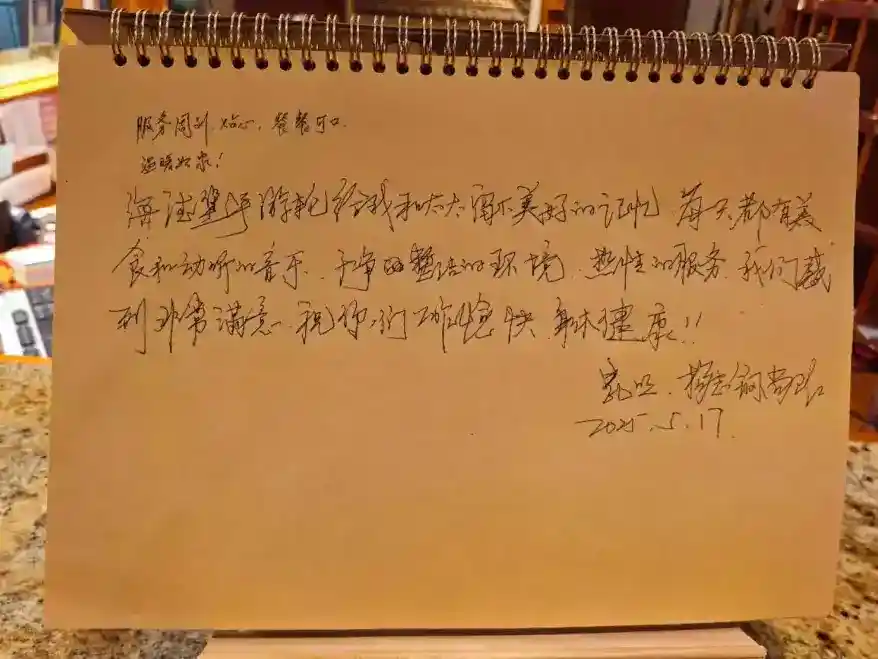 服务周到 贴心, 餐餐可口.
温暖如家!
海达路德游轮给我和太太留下美好的记忆 每天都有美
食和动听的音乐、干净的整洁的环境、热性的服务 我们感
到非常满意 祝你们工作愉快 身体健康!!
杨志钢
2025.5.17.